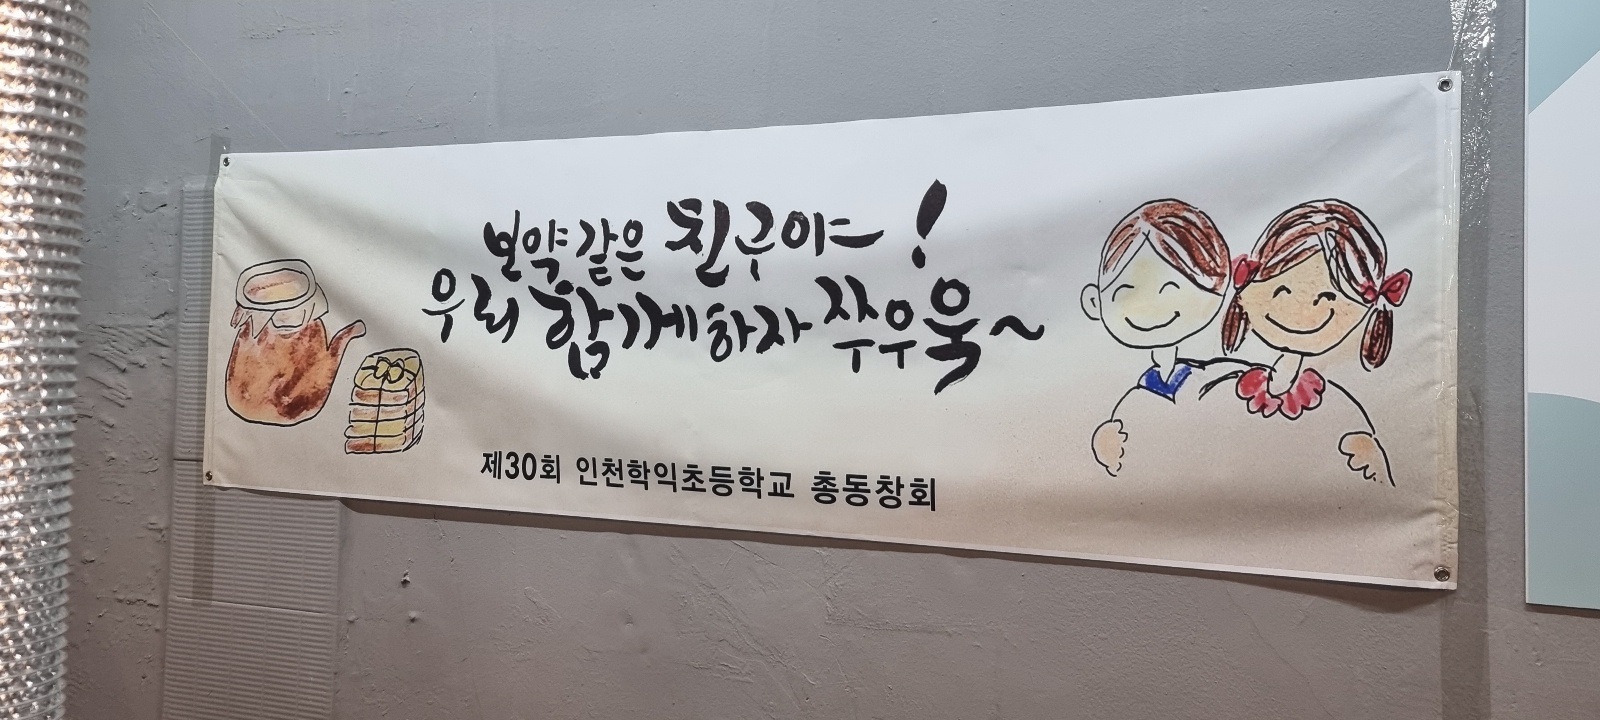 보약같은 친구야~!
우리 함께하자 쭈우욱~
제30회 인천학익초등학교 총동창회